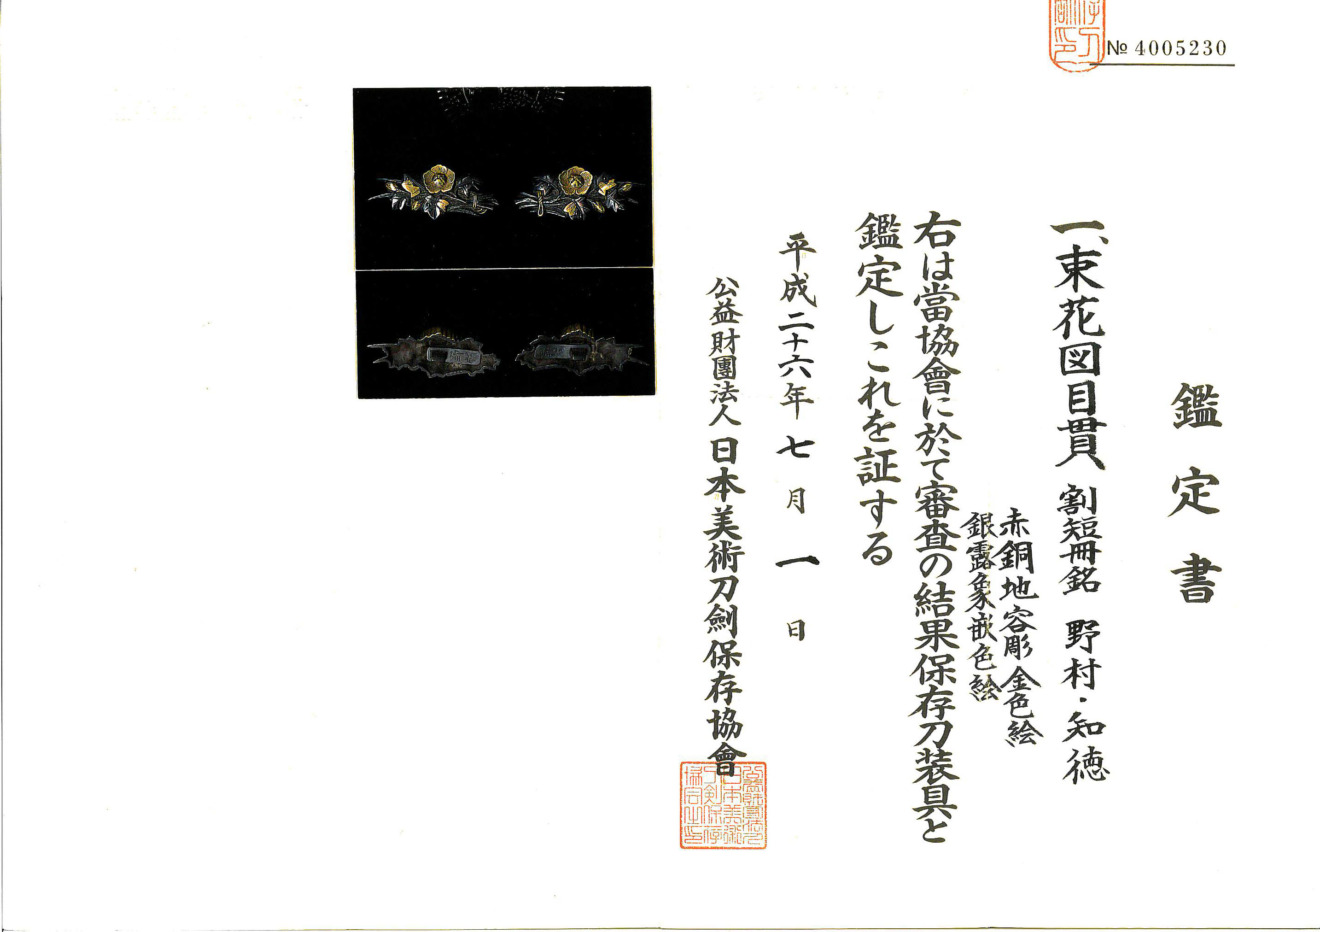 № 4005230
鑑定書
一、束花図目貫 割短冊銘 野村・知徳
赤銅地容彫金色絵
銀露象嵌色絵
右は當協會に於て審査の結果保存刀装具と
鑑定しこれを証する
平成二十六年七月一日
公益財團法人日本美術刀劍保存協會